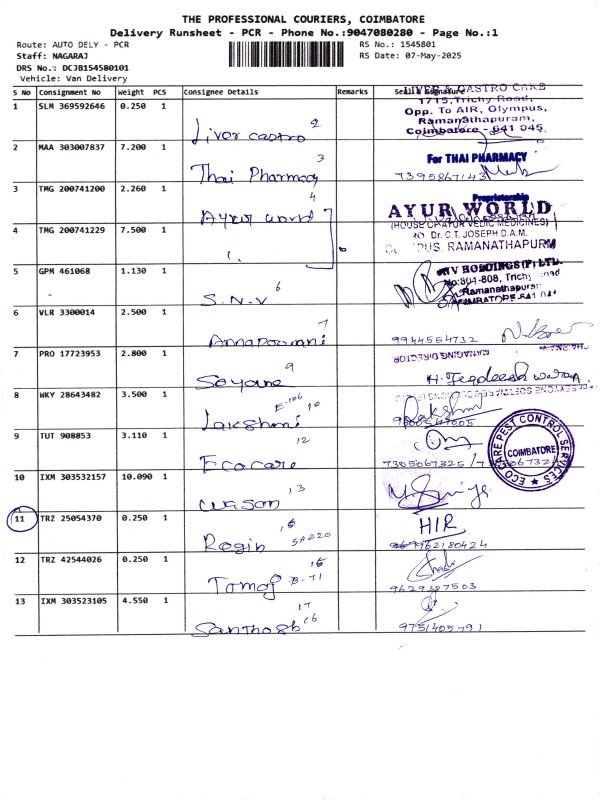 THE PROFESSIONAL COURIERS, COIMBATORE
Delivery Runsheet - PCR - Phone No.:9047080280 - Page No.:1
Route: AUTO DELY - PCR
RS No.: 1545801
Staff: NAGARAJ
RS Date: 07-May-2025
DRS No.: DCJB154580101
Vehicle: Van Delivery
S No Consignment No Weight PCS Consignee Details Remarks Seal & Signature
1 SLM 369592646 0.250 1 Liver Gastro 2
LIVER & GASTRO CARE
1715, Trichy Road,
Opp. To AIR, Olympus,
Ramanathapuram,
Coimbatore - 641 045.
2 MAA 303007837 7.200 1 Thai Pharmacy 3
For THAI PHARMACY
7395867143
3 TMG 200741200 2.260 1 Ayur world 4
Proprietorship
AYUR WORLD
(HOUSE OF AYUR VEDIC MEDICINES)
Dr. C.T. JOSEPH D.A.M.
RAMANATHAPURM
4 TMG 200741229 7.500 1
5 GPM 461068 1.130 1 S.N.V 6
HOLDINGS (P) LTD.
No:804-808, Trichy Road
Ramanathapuram
COIMBATORE-641 04
6 VLR 3300014 2.500 1 Annapoorani 7
9944554732
7 PRO 17723953 2.800 1 Soyone 9
MANAGING DIRECTOR
8 WKY 28643482 3.500 1 Lakshmi E-106 10
9 TUT 908853 3.110 1 Ecocare 12
7305067325
ECO CARE PEST CONTROL SERVICES
COIMBATORE
10 IXM 303532157 10.090 1 Wason 13
11 TRZ 25054370 0.250 1 Rogin SA220
HIR
9962180424
12 TRZ 42544026 0.250 1 Tomoj B-71
9629387503
13 IXM 303523105 4.550 1 Santhosh 17